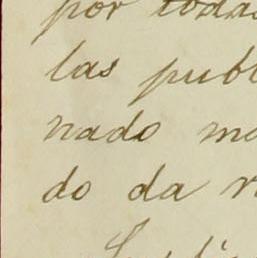 por todas
las publ
nado ma
do da r